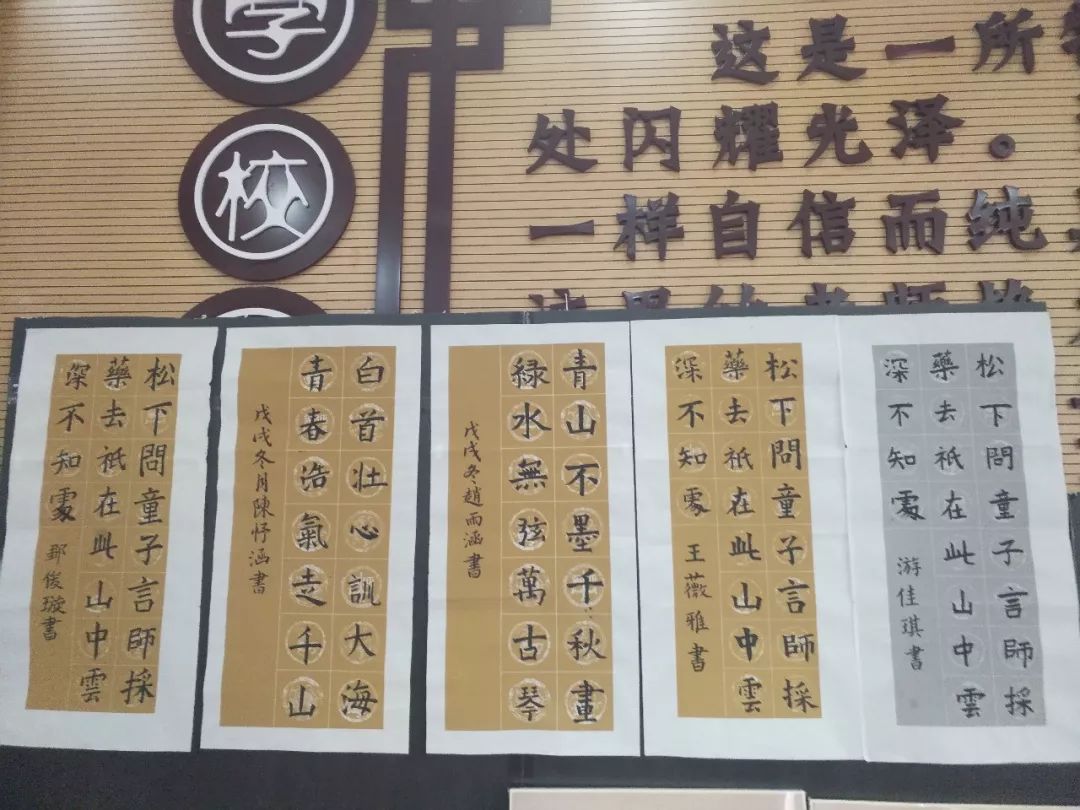 校
这是一所
处闪耀光泽。
一样自信而纯
松下問童子言師採
藥去祇在此山中雲
深不知處 俊璇書
白首壯心訓大海
青春浩氣走千山
戊戌冬月陳忬涵書
青山不墨千秋畫
緑水無弦萬古琴
戊戌冬趙雨涵書
松下問童子言師採
藥去祇在此山中雲
深不知處 王薇雅書
松下問童子言師採
藥去祇在此山中雲
深不知處 游佳琪書